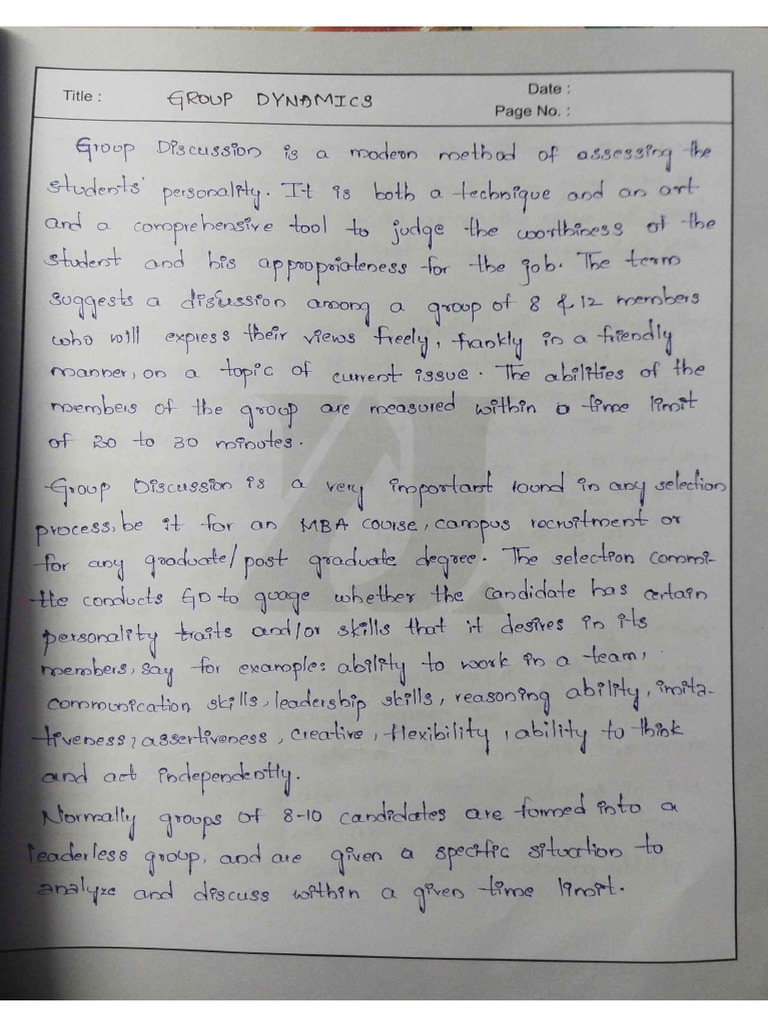 Title : GROUP DYNAMICS
Date :
Page No. :
Group Discussion is a modern method of assessing the
students' personality. It is both a technique and an art
and a comprehensive tool to judge the worthiness of the
student and his appropriateness for the job. The term
suggests a discussion among a group of 8 & 12 members
who will express their views freely, frankly in a friendly
manner, on a topic of current issue. The abilities of the
members of the group are measured within a time limit
of 20 to 30 minutes.
Group Discussion is a very important round in any selection
process, be it for an MBA course, campus recruitment or
for any graduate/post graduate degree. The selection commi-
tte conducts GD to guage whether the candidate has certain
personality traits and/or skills that it desires in its
members, say for example: ability to work in a team,
communication skills, leadership skills, reasoning ability, imita-
tiveness, assertiveness, creative, flexibility, ability to think
and act independently.
Normally groups of 8-10 candidates are formed into a
leaderless group, and are given a specific situation to
analyze and discuss within a given time limit.